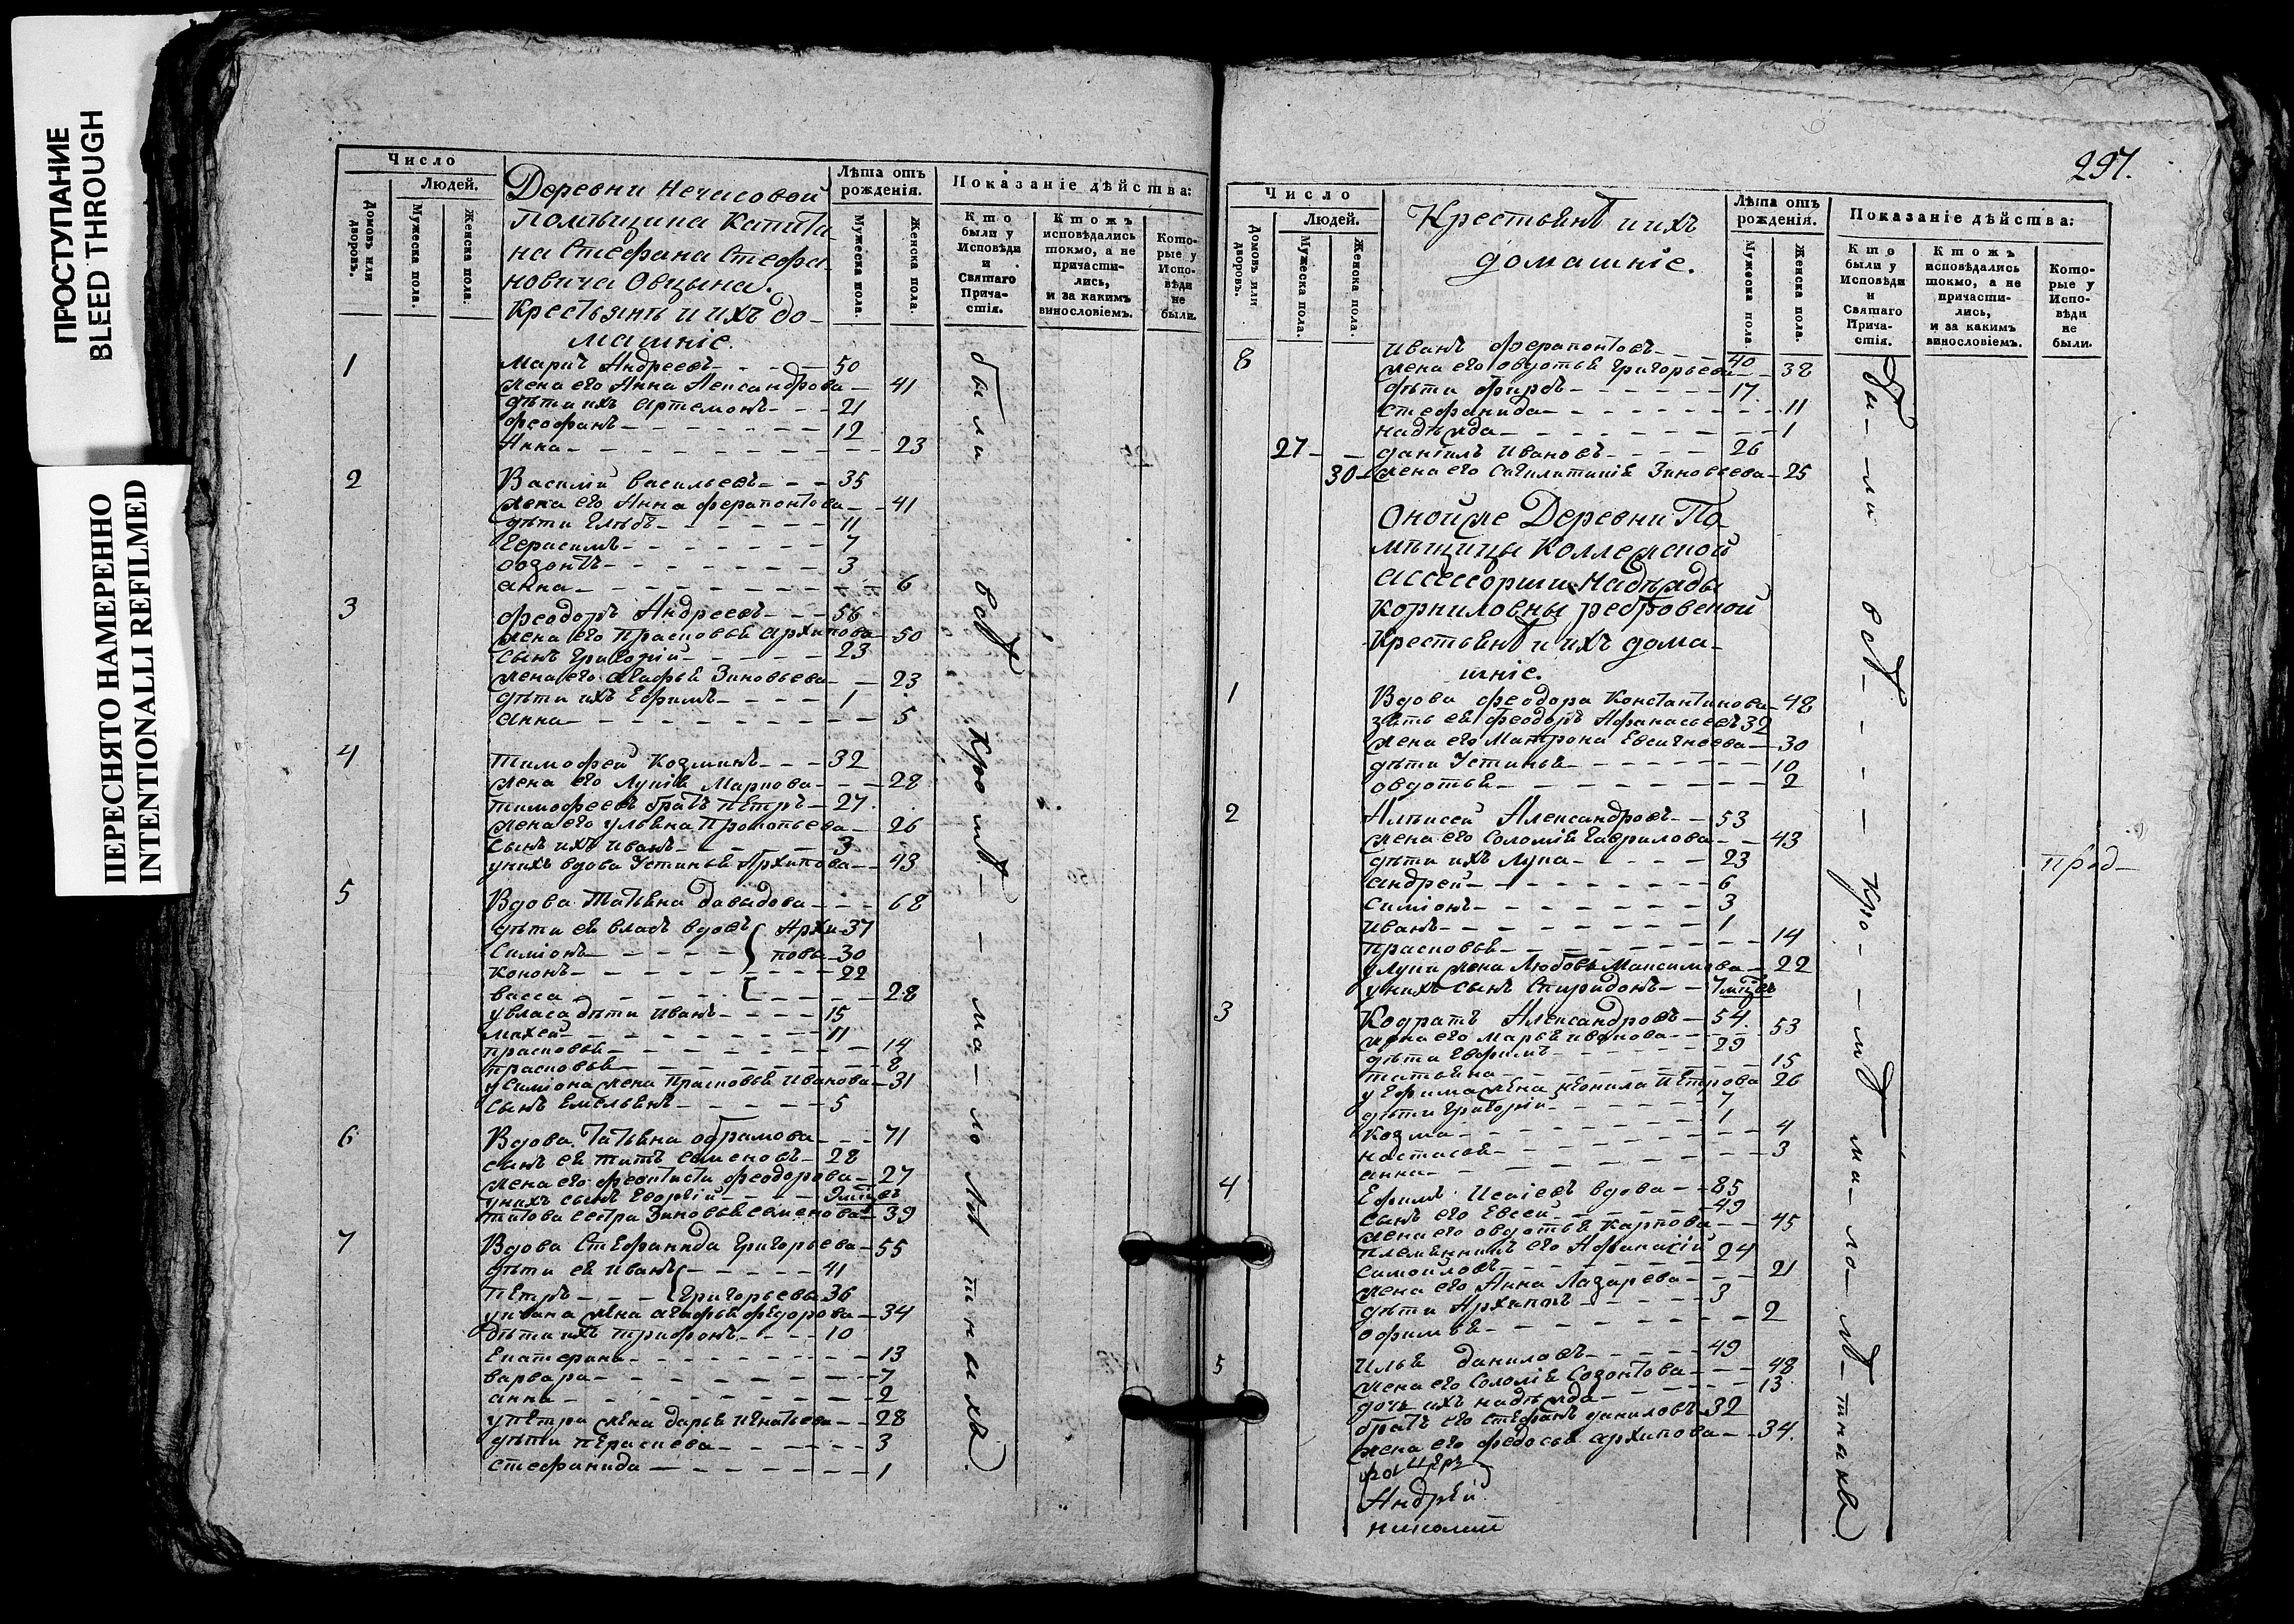 ПРОСТУПАНИЕ
BLEED THROUGH
ПЕРЕСНЯТО НАМЕРЕННО
INTENTIONALLI REFILMED
Число
Людей.
Домовъ или дворовъ.
Мужеска пола.
Женска пола.
Деревни Нечасовой
помѣщика Капита
на Стефана Стефа
новича Овцына.
Крестьянѣ и ихъ до-
машніе.
Лѣта отъ рожденія.
Мужеска пола.
Женска пола.
Показаніе дѣйства:
Кто были у Исповѣди и Святаго Причастія.
Ктожъ исповѣдались токмо, а не причастились, и за какимъ винословіемъ.
Которые у Исповѣди не были.
1 Андреевъ - 50
жена его Анна Александрова - 41
дѣти ихъ Артемонъ - 21
Феофанъ - 12
Анна - 23
2 Василій Васильевъ - 35
жена его Анна Ферапонтова - 41
дѣти Глѣбъ - 11
Герасимъ - 7
3
анна - 6
3 Феодоръ Андреевъ - 56
жена его Прасковья Архипова - 50
сынъ Григорій - 23
жена его Агафья Зиновьева - 23
дѣти ихъ Ефимъ - 1
анна - 5
4 Тимофей Козминъ - 32
жена его Лукія Маркова - 28
Тимофеевъ братъ Петръ - 27
жена его Ульяна Прокопьева - 26
сынъ ихъ Иванъ - 3
у нихъ вдова Устинья Архипова - 43
5 Вдова Татьяна Давыдова - 68
дѣти ея Власъ вдовъ Архи- 37
Симіонъ повы - 30
Кононъ - 22
васса - 28
у Власа дѣти Иванъ - 15
11
прасковья - 14
прасковья - 8
у Симіона жена Прасковья Иванова - 31
сынъ Емельянъ - 5
6 Вдова Татьяна обрамова - 71
сынъ ея Титъ Семеновъ - 28
жена его Феоктиста Феодорова - 27
у нихъ сынъ Георгій
Титова сестра Зиновья Семенова - 39
7 Вдова Стефанида Григорьева - 55
дѣти ея Иванъ - 41
Петръ - Григорьевы 36
у Ивана жена агафья федорова - 34
дѣти ихъ Трифонъ - 10
Екатерина - 13
варвара - 7
анна - 2
у Петра жена дарья игнатьева - 28
дѣти - 3
стефанида - 1
были всѣ кромѣ малолѣтныхъ
297.
Число
Людей.
Домовъ или дворовъ.
Мужеска пола.
Женска пола.
Крестьянѣ и ихъ
домашніе.
Лѣта отъ рожденія.
Мужеска пола.
Женска пола.
Показаніе дѣйства:
Кто были у Исповѣди и Святаго Причастія.
Ктожъ исповѣдались токмо, а не причастились, и за какимъ винословіемъ.
Которые у Исповѣди не были.
8 Иванъ Ферапонтовъ - 40
жена его овдотья Григорьева - 38
дѣти - 17
стефанида - 11
надѣжда - 1
27 - даніилъ Ивановъ - 26
30 - жена его Зиновьева - 25
Оной же Деревни По-
мѣщицы Коллежской
ассессорши Надѣжды
Корниловны Ребровской
Крестьянѣ и ихъ дома-
шніе.
1 Вдова феодора Константинова - 48
зять ея Феодоръ Афанасьевъ 32
жена его Матрона Евсигнеева - 30
дѣти Устинья - 10
овдотья - 2
2 Алѣксей Александровъ - 53
жена его Соломія Гаврилова - 43
дѣти ихъ Лука - 23
андрей - 6
Симіонъ - 3
Иванъ - 1
прасковья - 14
у Луки жена Любовь Максимова - 22
у нихъ сынъ Спиридонъ
3 Кодратъ Александровъ - 54
жена его Марья иванова - 53
дѣти Ефимъ - 29
татьяна - 15
у Ефима жена неонила Петрова 26
дѣти Григорій - 7
Козма - 1
настасья - 4
анна - 3
4 Ефимъ Исаіевъ вдова - 85
сынъ его Евсей - 49
жена его овдотья Карпова - 45
племянникъ его Афанасій
Самойловъ - 24
жена его Анна Лазарева - 21
дѣти Архипъ - 3
офимья - 2
5 Илья даниловъ - 49
жена его Соломія Созонтова - 48
дочь ихъ надѣжда - 13
братъ его Стефанъ даниловъ 32
жена его федосья архипова - 34
Андрей
николай
были всѣ кромѣ малолѣтныхъ